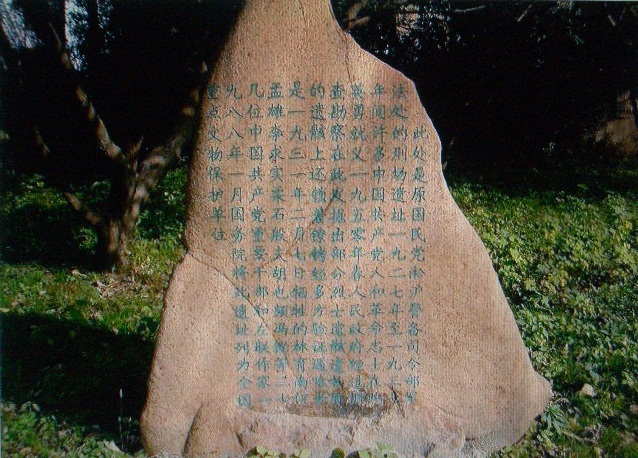 此处是原国民党淞沪警备司令部军
法处的刑场遗址一九二七年至一九三
年间许多中国共产党人和革命志士在
英勇就义一九五零年春人民政府经过调
查勘察在此发掘出部分烈士遗骸遗物
的遗骸上还锁着镣铐经多方验证
是一九三一年二月七日牺牲的林育南何
孟雄李求实柔石殷夫胡也频冯铿等二十
几位中国共产党重要干部和左联作家一
九八八年一月国务院将此遗址列为全国
重点文物保护单位